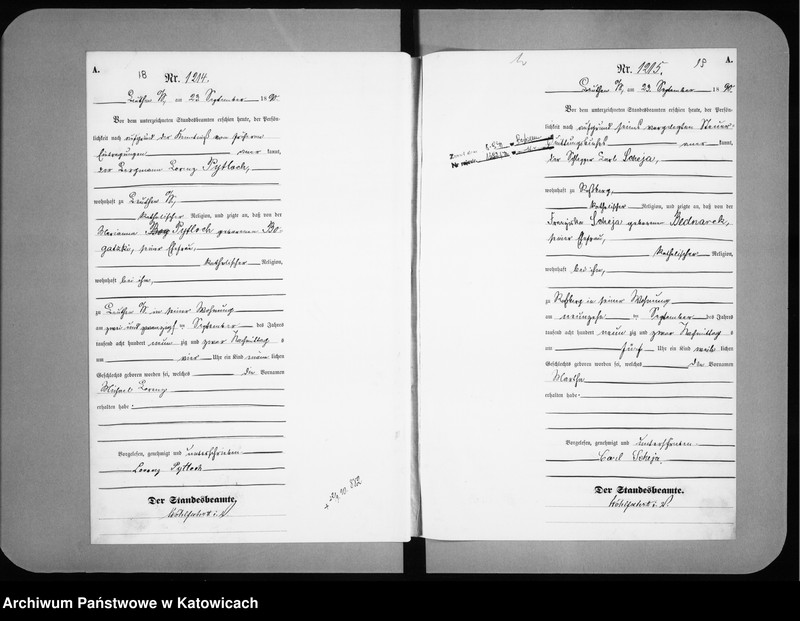 A.
18
Nr. 1214.
Beuthen O/S, am 23 September 1890.
Vor dem unterzeichneten Standesbeamten erschien heute, der Persön-
lichkeit nach auf Grund der Kenntniß von früheren
Eintragungen kannt,
der Bergmann Lorenz Pytloch,
wohnhaft zu Beuthen O/S,
katholischer Religion, und zeigte an, daß von der
Marianna Pytloch geborenen Bo-
gatzki, seiner Ehefrau,
katholischer Religion,
wohnhaft bei ihm,
zu Beuthen O/S in seiner Wohnung
am zwei und zwanzigsten September des Jahres
tausend acht hundert neunzig und zwar Nachmittag s
um vier Uhr ein Kind männlichen
Geschlechts geboren worden sei, welches die Vornamen
Michael Lorenz
erhalten habe
Vorgelesen, genehmigt und unterschrieben
Lorenz Pytloch
Der Standesbeamte.
A.
18
Nr. 1215.
Beuthen O/S, am 23 September 1890.
Vor dem unterzeichneten Standesbeamten erschien heute, der Persön-
lichkeit nach auf Grund seines vorgelegten Steuer-
quittungsbuches kannt,
der Schlepper Carl Scheja,
wohnhaft zu Roßberg,
katholischer Religion, und zeigte an, daß von der
Franziska Scheja geborenen Bednarek,
seiner Ehefrau,
katholischer Religion,
wohnhaft bei ihm,
zu Roßberg in seiner Wohnung
am neunzehn ten September des Jahres
tausend acht hundert neunzig und zwar Nachmittag s
um fünf Uhr ein Kind weiblichen
Geschlechts geboren worden sei, welches die Vornamen
Martha
erhalten habe
Vorgelesen, genehmigt und unterschrieben
Carl Scheja
Der Standesbeamte.
Archiwum Państwowe w Katowicach